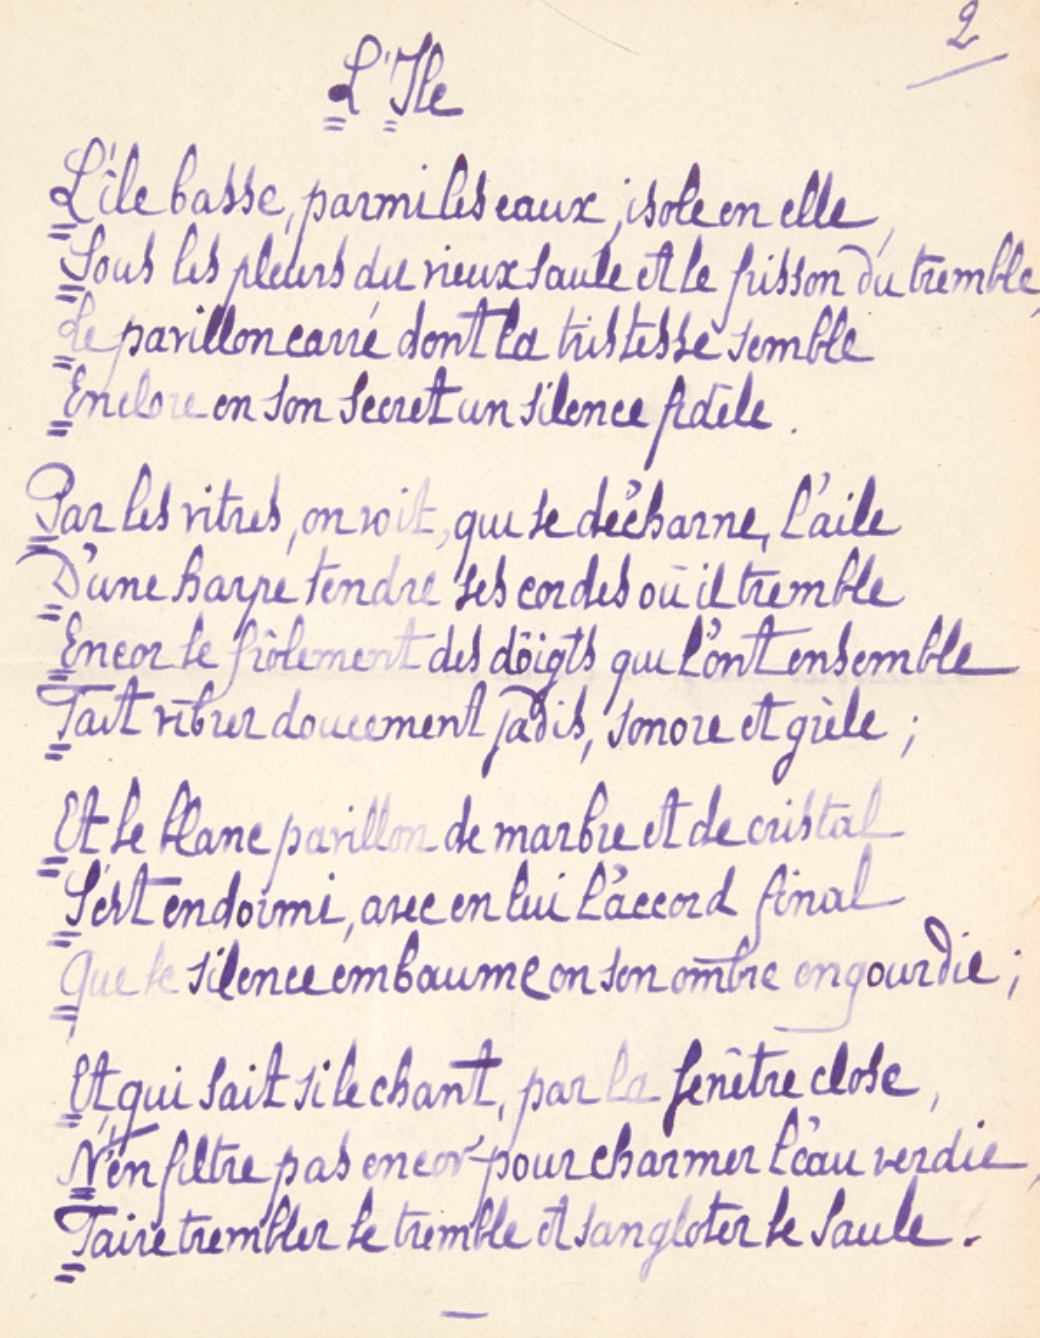 2
L'Ile
L'île basse, parmi les eaux, isole en elle,
Sous les pleurs du vieux saule et le frisson du tremble,
Le pavillon carré dont la tristesse semble
Enclore en son secret un silence fidèle.
Par les vitres, on voit, qui se décharne, l'aile
D'une harpe tendre ses cordes où il tremble
Encor le frôlement des doigts qui l'ont ensemble
Fait vibrer doucement jadis, sonore et grèle ;
Et le blanc pavillon de marbre et de cristal
S'est endormi, avec en lui l'accord final
Que le silence embaume en son ombre engourdie ;
Et, qui sait si le chant, par la fenêtre close,
N'en filtre pas encor pour charmer l'eau verdie,
Faire trembler le tremble et sangloter le saule.